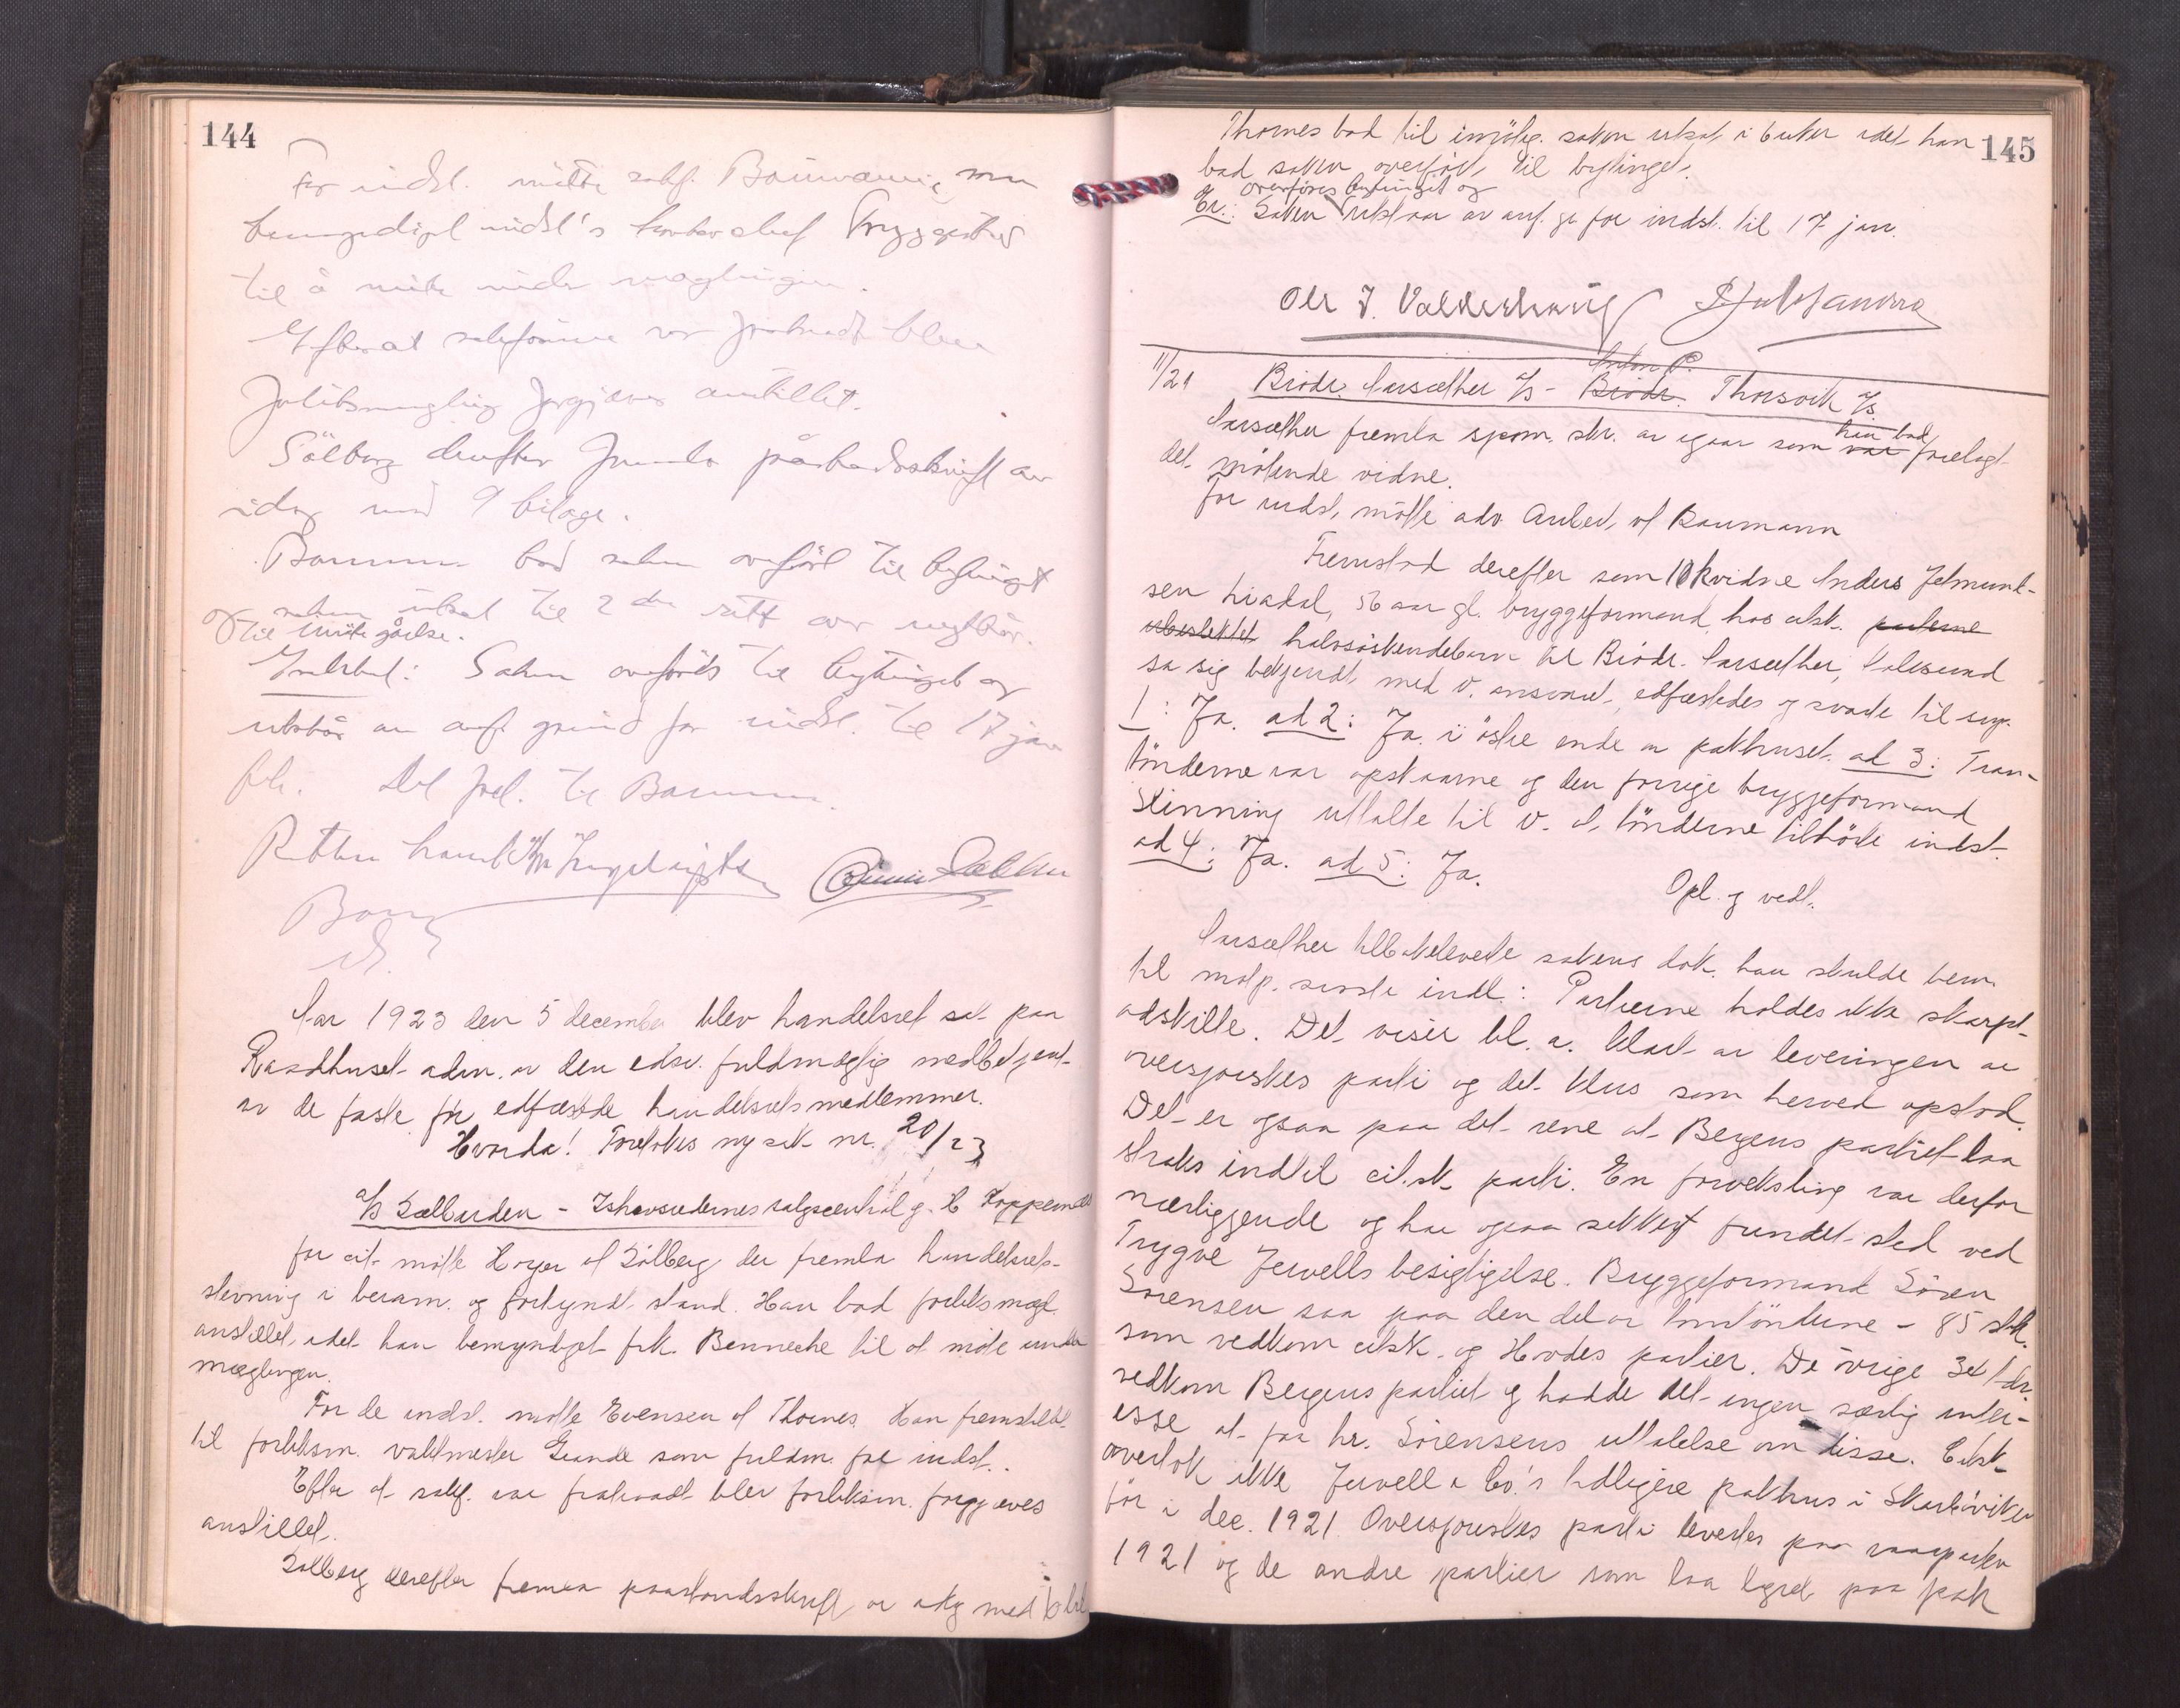 144
For indst. mötte sakf. Baumann, som
bemyndiget indst's kontorchef Bryggestad
til å möte under mæglingen.
Efterat sakförerne var fratraadt blev
forliksmægling forgjæves anstillet.
Sölberg derefter fremla påstandsskrift av
idag med 9 bilage.
Baumann bad saken overfört til bytinget
og saken utsat til 2den rett over nyttår.
til imötegåelse.
Eralrbet: Saken overföres til bytinget og
utstår av anf. grund for indst. til 17 jan
Det for. til Baumann.
Retten hævet
Aar 1923 den 5 december blev handelsret sat paa
Raadhuset adm. av den edsv. fuldmægtig medbetjent
av de faste för edfæstede handelsretsmedlemmer.
Hvorda! Foretokes ny sak nr. 20/23
A/S Sælbarden - Ishavsredernes salgscentral g. C Koppernæs
for cit. mötte Höyer v/ Sölberg der fremla handelsrets-
stevning i beram. og forkyndt stand. Han bad forliksmægl.
anstillet, idet han bemyndiget frk. Benneche til at möte under
mæglingen.
For de indst. mötte Evensen v/ Thornes. Han fremstillet
til forliksm. vaktmester Grande som fuldm. for indst.
Efter at sakf. var fratraadt blev forliksm. forgjæves
anstillet.
Sölberg derefter fremla paastandsskrift av idag med 6 bil
145
Thornes bad til imöteg. saken utsat i 6 uker idet han
bad saken overfört til bytinget.
overföres bytinget og
Er.: Saken utstaar av anf. gr for indst. til 17 jan.
Ole J. Valderhaug
11/21 Brödr. Aarsæther A/S - Brödr. Anton P. Thorsvik A/S.
Aarsæther fremla spörsm. skr. av igaar som var han bad forelagt
det mötende vidne.
for indst. mötte adv. Aubert, v/ Baumann
Fremstod derefter som 10k vidne Anders Jetmund-
sen Liadal, 56 aar gl. bryggeformand hos citst. parterne
ubeslektet halvsöskendebarn til Brödr. Aarsæther, Aalesund
sa sig bekjendt med v. ansvaret, edfæstedes og svarte til sup.
1: Ja. ad 2: Ja. i östre ende av pakhuset. ad 3: Tran-
tönderne var opskaarne og den forrige bryggeformand
Skinning uttalte til v. at tönderne tilhörte indst.
ad 4: Ja. ad 5: Ja.
Opl. og vedt.
Aarsæther tilbakeleverte sakens dok. han skulde bem.
til motp. sinste indl.: Partierne holdes ikke skarpt
adskilte. Det viser bl. a. klart av leveringen av
oversjoiskes parti og det klus som herved opstod.
Det er ogsaa paa det rene at Bergens partiet laa
straks indtil citst. parti. En forveksling var derfor
nærliggende og har ogsaa sikkert fundet sted ved
Trygve Jervells besigtigelse. Bryggeformand Sören
Sörensen saa paa den del av trantönderne - 85 stk.
som vedkom citst. og Hordes partier. De övrige 32 tdr.
vedkom Bergens partiet og hadde det ingen særlig inter-
esse at faa hr. Sörensens uttalelse om disse. Citst.
overtok ikke Jervell & Co.'s tidligere pakhus i Skarböviken
för i dec. 1921. Oversjoiskes parti levertes paa vaarparten
1921 og de andre partier som laa lagret paa pak